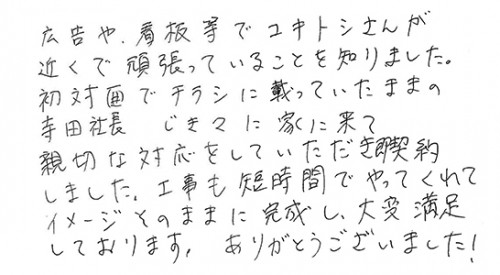 広告や、看板等でユキトシさんが
近くで頑張っていることを知りました。
初対面でチラシに載っていたままの
寺田社長 じき々に家に来て
親切な対応をしていただき即契約
しました。工事も短時間でやってくれて
イメージそのままに完成し、大変満足
しております。ありがとうございました!